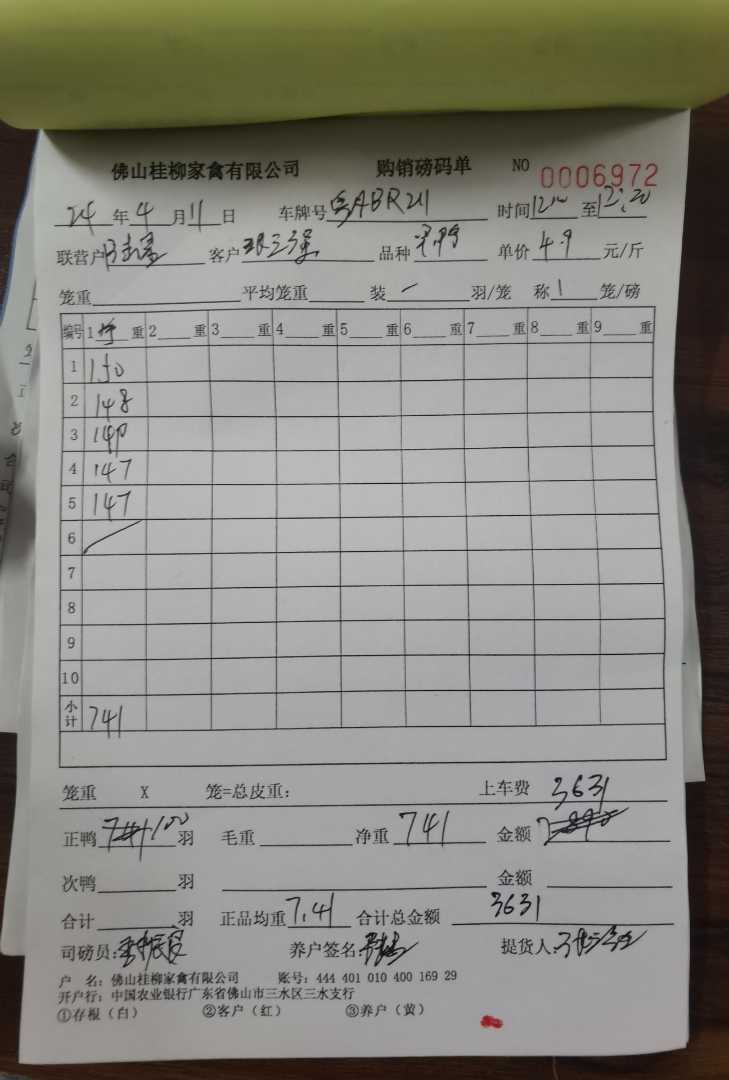 佛山桂柳家禽有限公司 购销磅码单 NO 0006972
24年4月11日 车牌号 粤ABR211 时间 至12:20
联营户 客户 品种 单价4.9元/斤
笼重 平均笼重 装一羽/笼 称1笼/磅
编号 1 重 2 重 3 重 4 重 5 重 6 重 7 重 8 重 9 重
1 150
2 148
3 149
4 147
5 147
6
7
8
9
10
小计 741
笼重 X 笼=总皮重: 上车费 3631
正鸭 100 羽 毛重 净重 741 金额
次鸭 羽 金额
合计 羽 正品均重 7.41 合计总金额 3631
司磅员: 养户签名: 提货人:
户 名: 佛山桂柳家禽有限公司 账号: 444 401 010 400 169 29
开户行: 中国农业银行广东省佛山市三水区三水支行
①存根（白） ②客户（红） ③养户（黄）